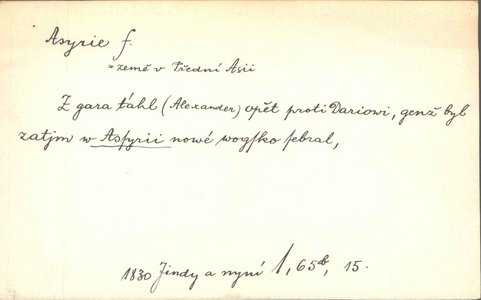 Asyrie f.
= země v Přední Asii
Z gara táhl (Alexander) opět proti Dariowi, genž byl
zatjm w Asſyrii nowé wogſko ſebral,
1830 Jindy a nyní 1, 65b, 15.